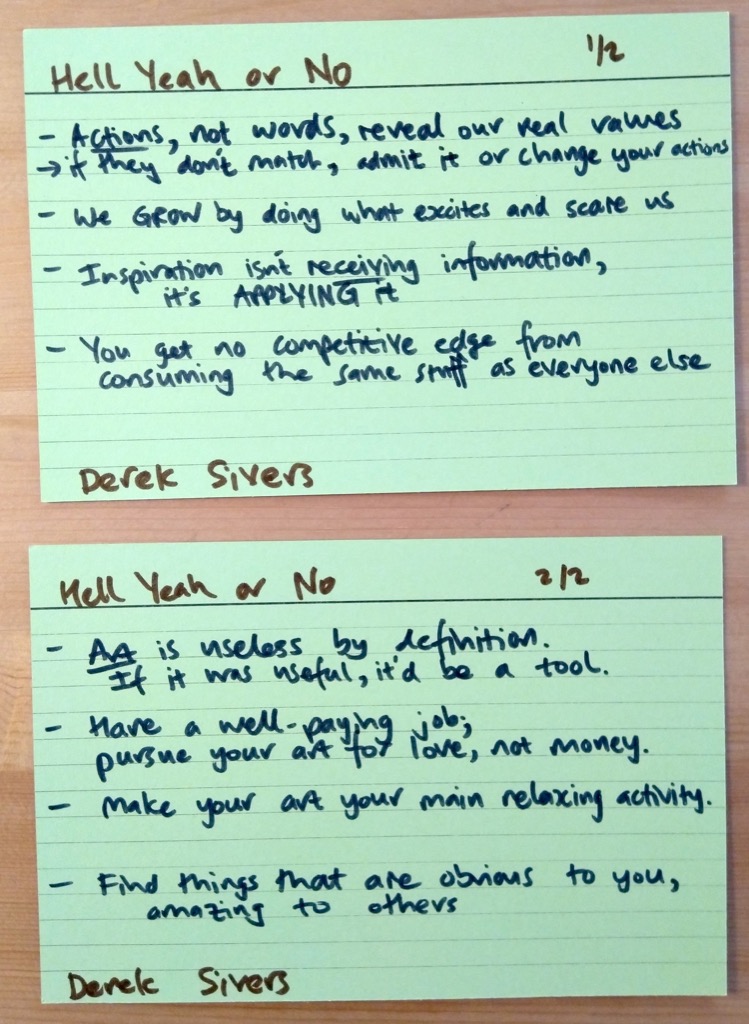 Hell Yeah or No 1/2
- Actions, not words, reveal our real values
→ if they don't match, admit it or change your actions
- We GROW by doing what excites and scare us
- Inspiration isn't receiving information,
it's APPLYING it
- You get no competitive edge from
consuming the same stuff as everyone else
Derek Sivers
Hell Yeah or No 2/2
- Art is useless by definition.
If it was useful, it'd be a tool.
- Have a well-paying job;
pursue your art for love, not money.
- Make your art your main relaxing activity.
- Find things that are obvious to you,
amazing to others
Derek Sivers